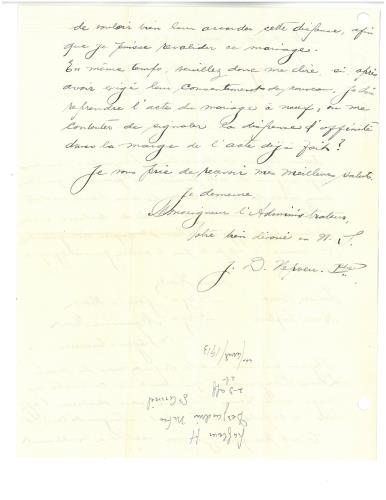 de vouloir bien leur accorder cette dispense, afin
que je puisse revalider ce mariage.
En même temps, veuillez donc me dire si après
avoir exigé leur consentement de nouveau, je dois
reprendre l'acte du mariage à neuf, ou me
contenter de signaler la dispense d'affinité
dans la marge de l'acte déjà fait?
Je vous prie de recevoir mes meilleurs saluts.
Je demeure
Monseigneur l'Administrateur,
Votre bien dévoué en N. S.
J. D. Nepveu. Ptre